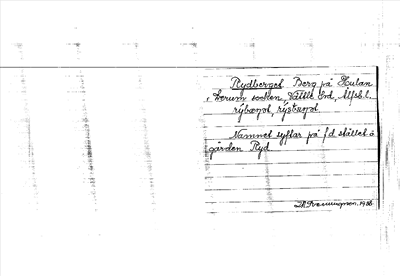 Rydberget. Berg på Hulan
i Lerum socken Vättle hd, Älfsb. l.
rýbæret, rýsbæret
Namnet syftar på f.d. stället å
gården Ryd
1916